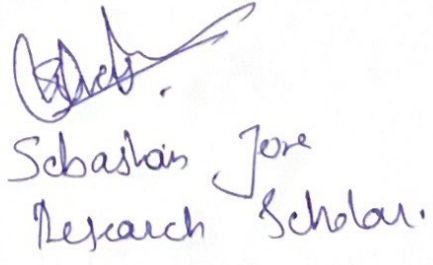 Sebastian Jose
Research Scholar.